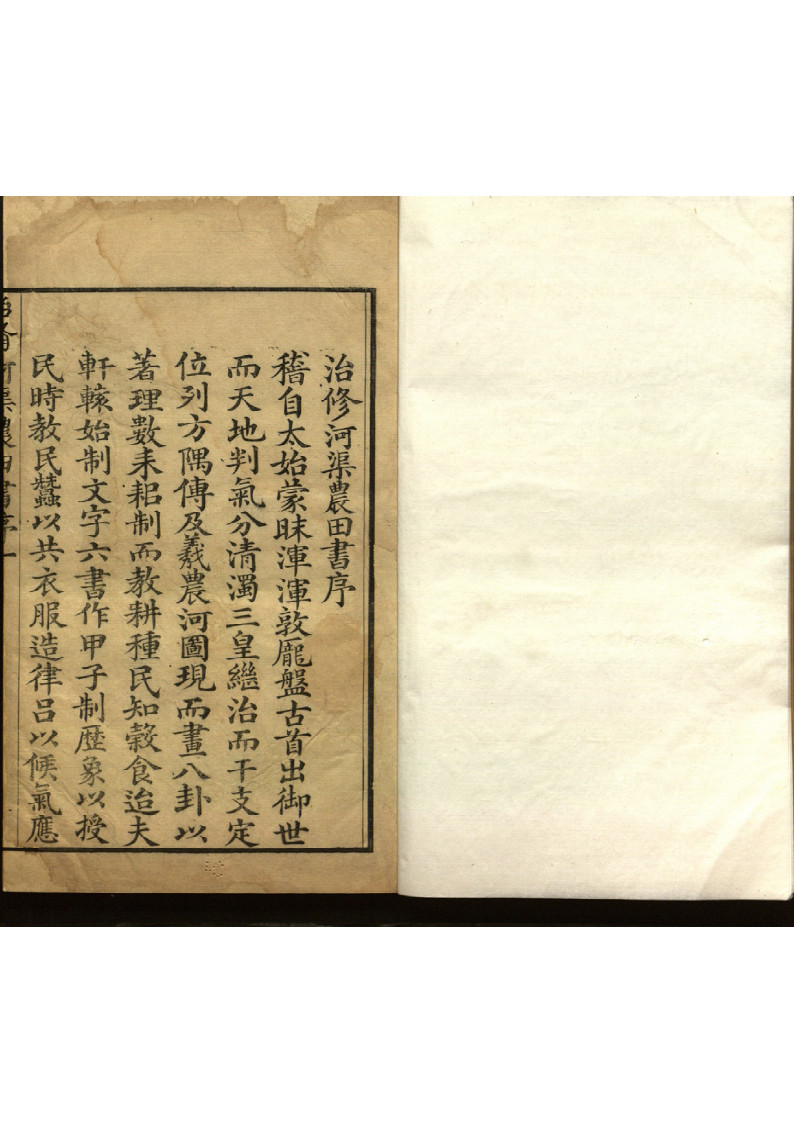 治修河渠農田書序
稽自太始蒙昧渾渾敦龐盤古首出御世
而天地判氣分清濁三皇繼治而干支定
位列方隅傳及羲農河圖現而畫八卦以
著理數耒耜制而教耕種民知穀食迨夫
軒轅始制文字六書作甲子制歷象以授
民時教民蠶以共衣服造律呂以候氣應
治脩河渠農田書序 一